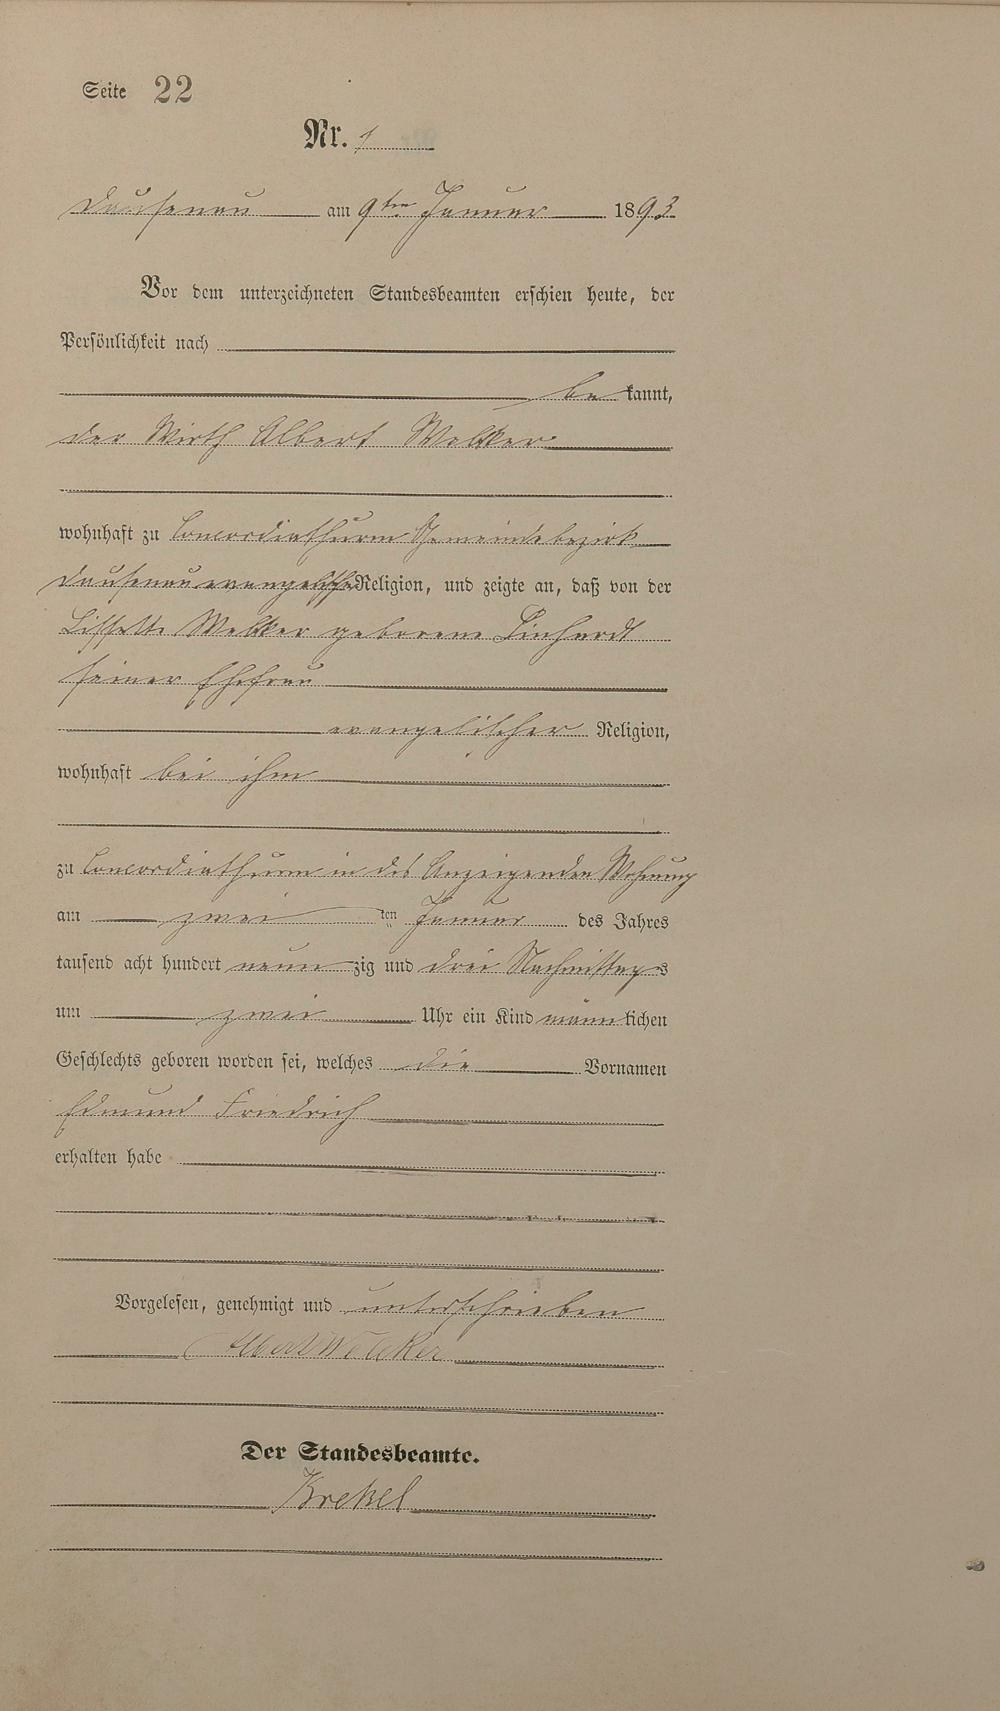 Seite 22
Nr. 1
Dausenau am 9ten Januar 1893
Vor dem unterzeichneten Standesbeamten erschien heute, der
Persönlichkeit nach
bekannt,
der Wirth Albert Welker
wohnhaft zu Concordiathurm Gemeindebezirk
Dausenau evangelische Religion, und zeigte an, daß von der
Lissette Welker geborene Linhardt
seiner Ehefrau
evangelischer Religion,
wohnhaft bei ihm
zu Concordiathurm in des Anzeigenden Wohnung
am zwei ten Januar des Jahres
tausend acht hundert neunzig und drei Nachmittags
um zwei Uhr ein Kind männlichen
Geschlechts geboren worden sei, welches die Vornamen
Edmund Friedrich
erhalten habe
Vorgelesen, genehmigt und unterschrieben
Albert Welcker
Der Standesbeamte.
Krekel